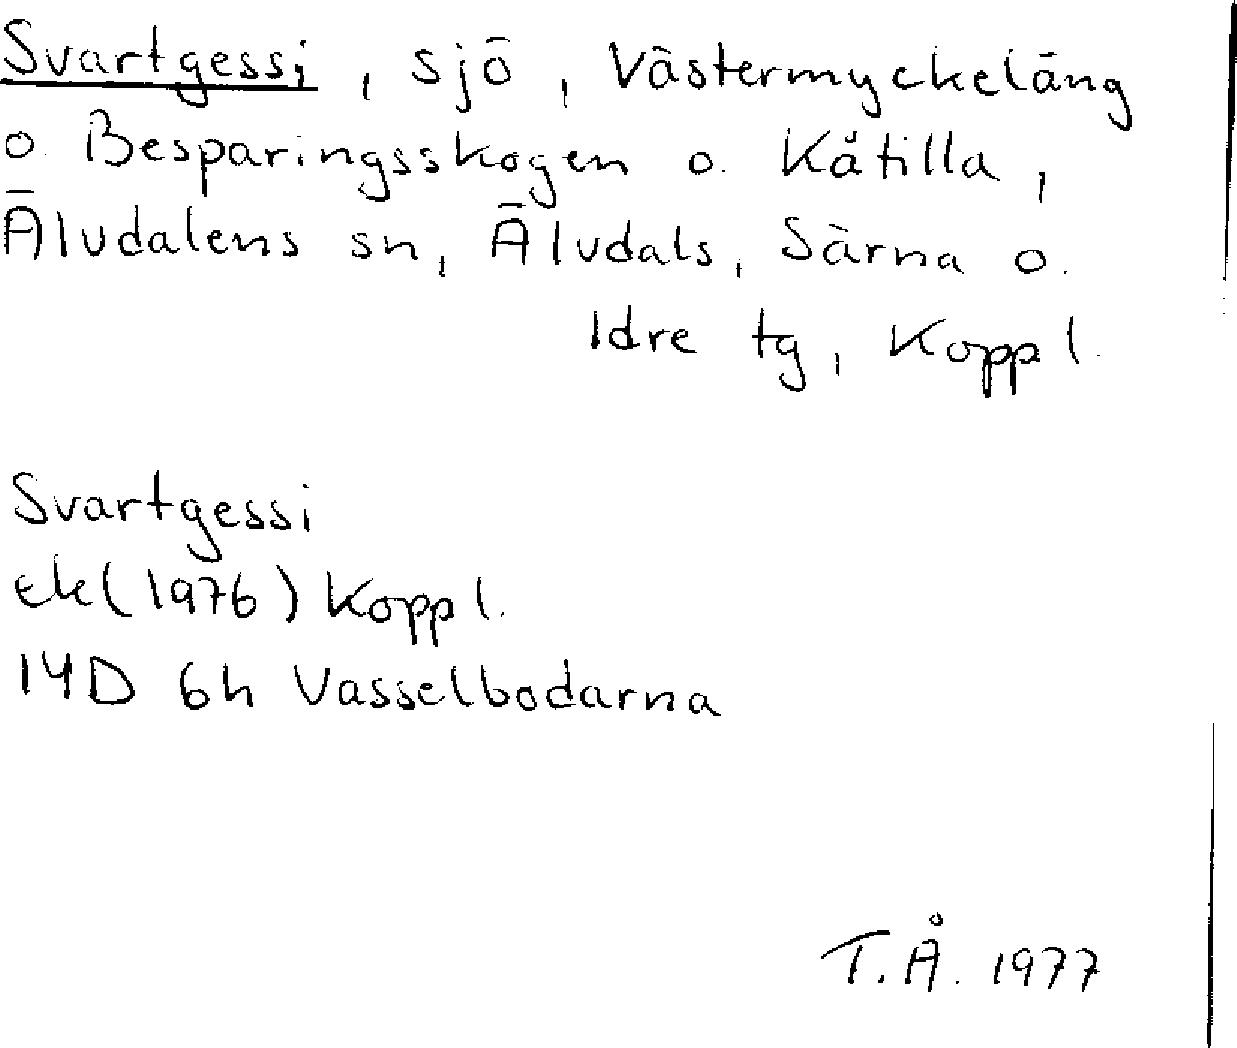 Svartgessi, sjö, Västermyckeläng
o. Besparingsskogen o. Kåtilla,
Älvdalens sn, Älvdals, Särna o.
Idre tg, Kopp l.
Svartgessi
ek (1976) Kopp l.
14D 6h Vasselbodarna
T.Å. 1977